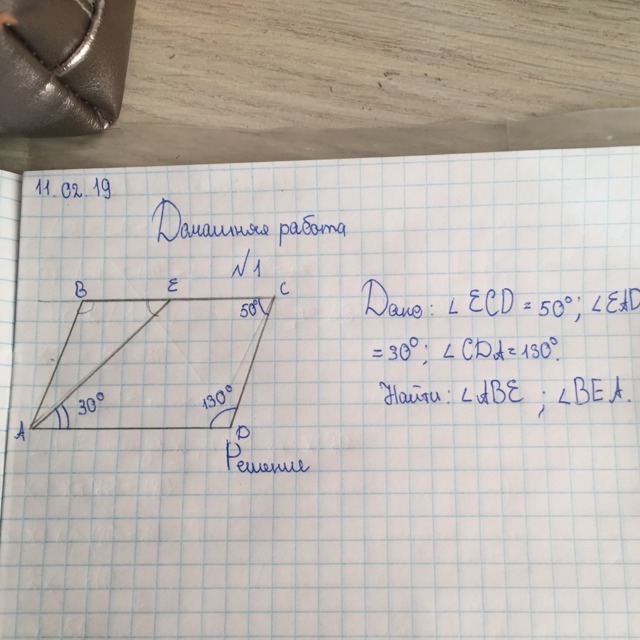 11.02.19
Домашняя работа
№1
B E C
50°
30° 130°
A D
Дано: ∠ECD = 50°; ∠EAD
= 30°; ∠CDA = 130°.
Найти: ∠ABE ; ∠BEA.
Решение